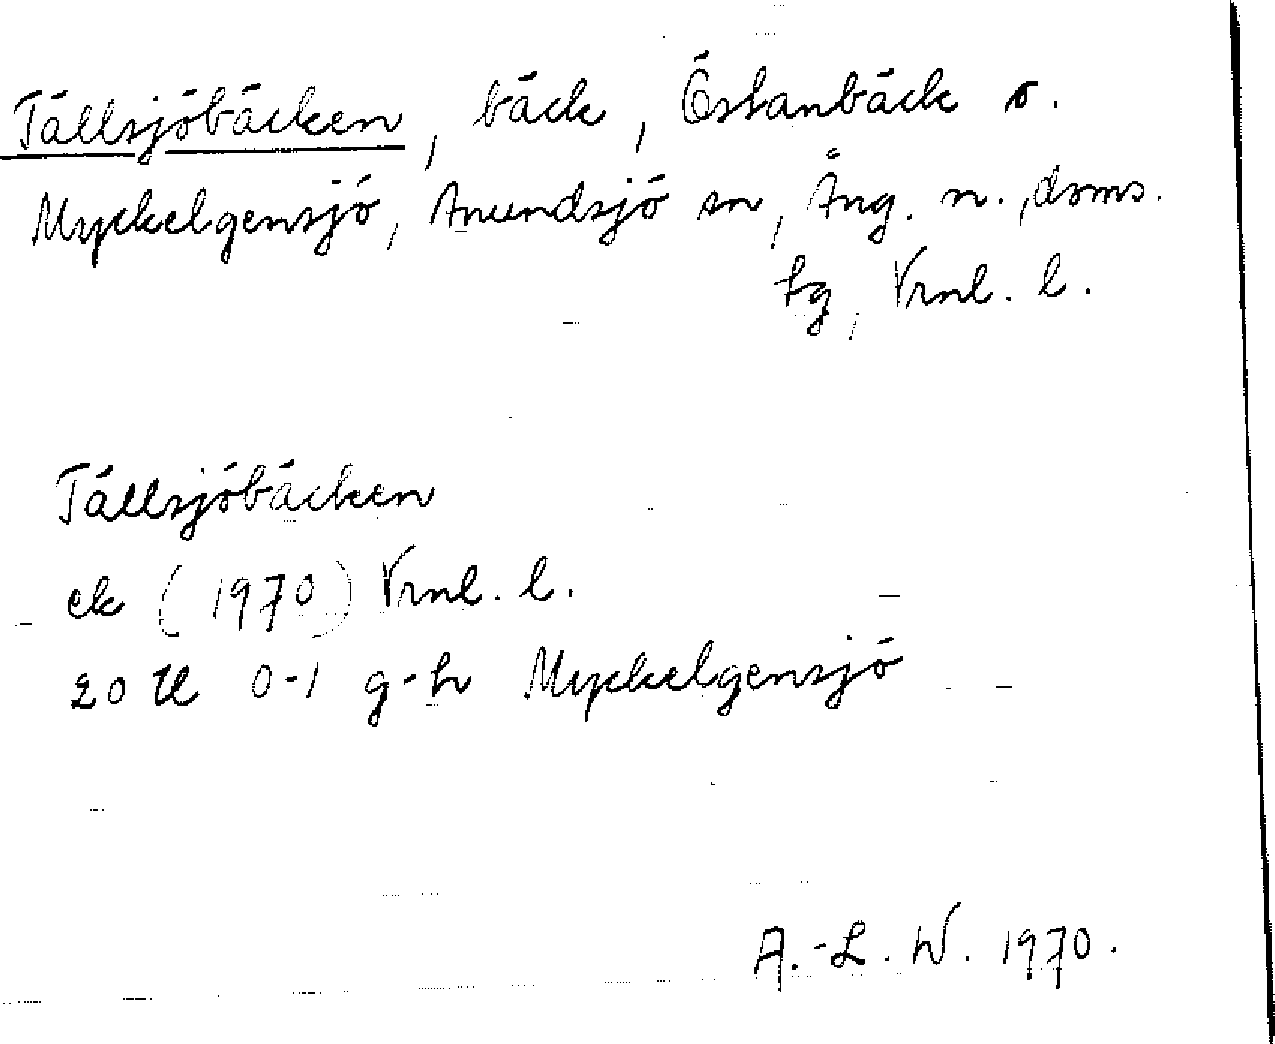 Tällsjöbäcken, bäck, Östanbäck o.
Myckelgensjö, Anundsjö sn, Ång. n., dsms.
hg, Vrnl. l.
Tällsjöbäcken
ek (1970) Vrnl. l.
20 H 0-1 g-h Myckelgensjö
A.-L. W. 1970.